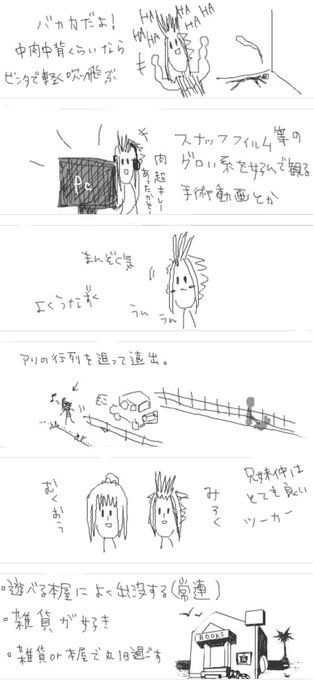 バカ力だよ!
中肉中背くらいなら
ビンタで軽く吹っ飛ぶ
HA HA HA HA HA HA
スナッフフィルム等の
グロい系を好んで観る
手術動画とか
PC
肉超キレー
あったかそー
まんぞく気
よくうなずく
うん うん
アリの行列を追って遠出。
兄妹仲は
とても良い
ツーカー
むくおう
みろく
・遊べる本屋によく出没する(常連)
・雑貨が好き
・雑貨or本屋で丸1日過ごす
BOOKS